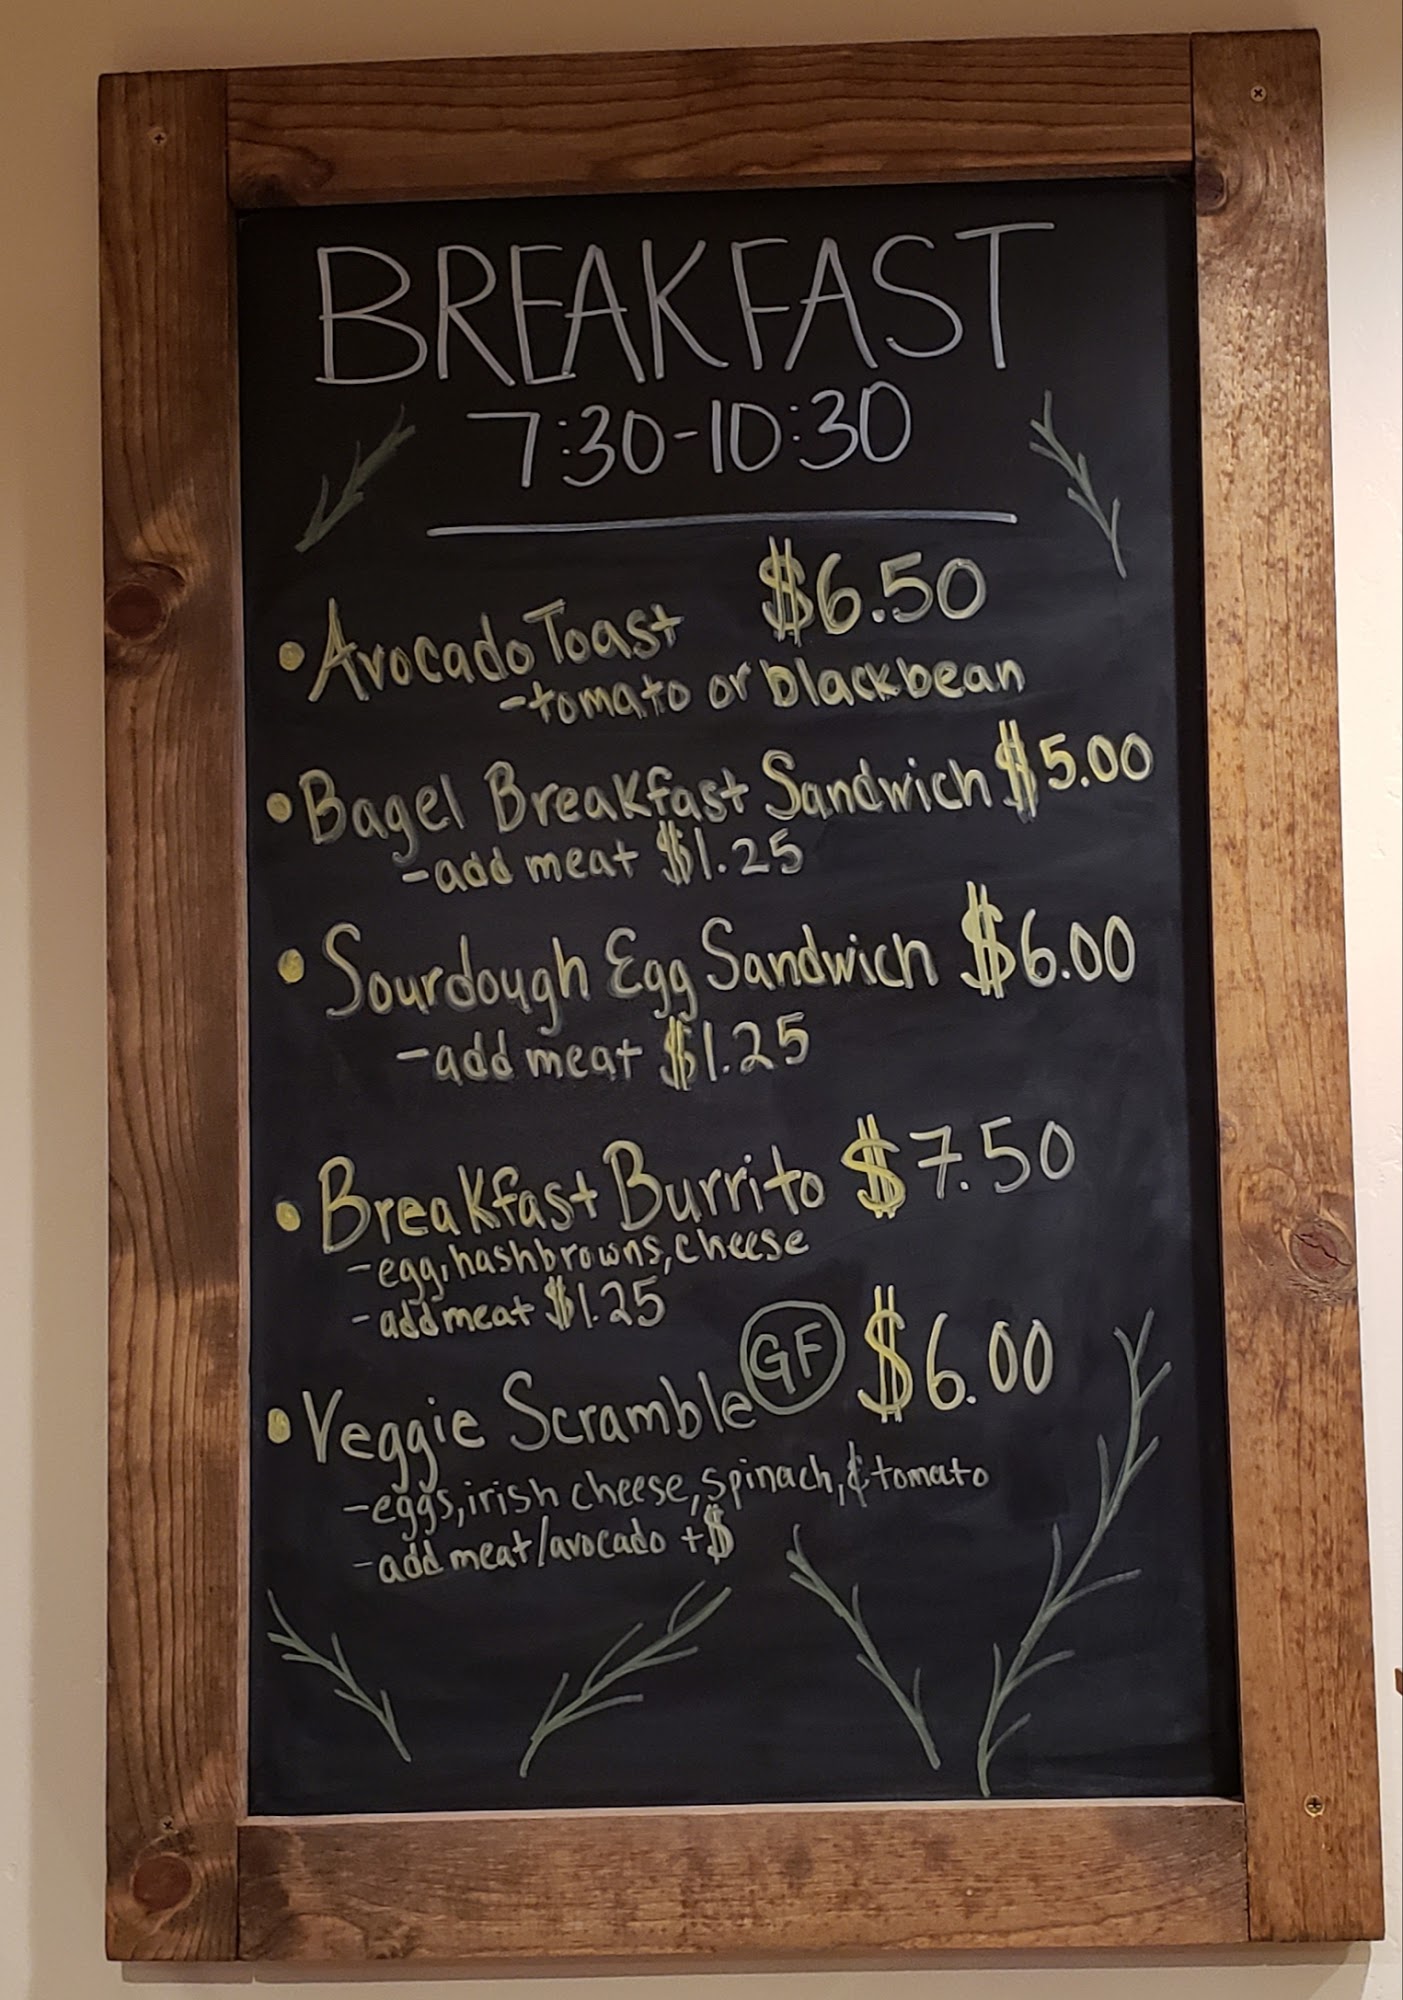 BREAKFAST
7:30-10:30
• Avocado Toast $6.50
-tomato or blackbean
• Bagel Breakfast Sandwich $5.00
-add meat $1.25
• Sourdough Egg Sandwich $6.00
-add meat $1.25
• Breakfast Burrito $7.50
-egg, hashbrowns, cheese
-add meat $1.25
• Veggie Scramble GF $6.00
-eggs, irish cheese, spinach, & tomato
-add meat/avocado +$